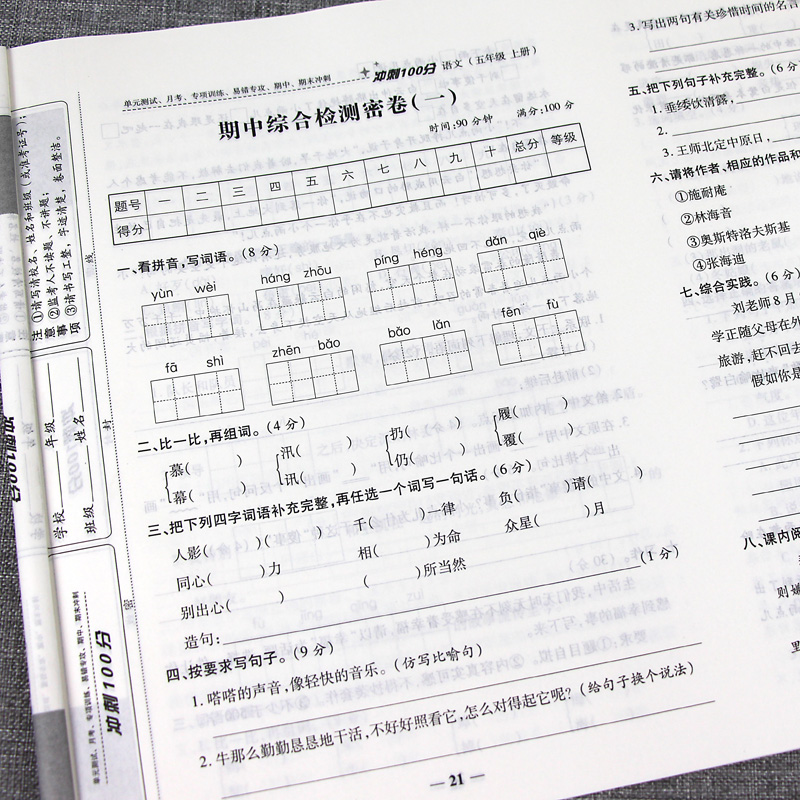 单元测试、月考、专项训练、易错专攻、期中、期末冲刺 冲刺100分 语文（五年级 上册）
期中综合检测密卷(一)
时间:90分钟 满分:100分
题号 一 二 三 四 五 六 七 八 九 十 总分 等级
得分
一、看拼音,写词语。(8分)
yùn wèi háng zhōu píng héng dān qiè
fā shì zhēn bǎo bǎo lǎn fēn fù
二、比一比,再组词。(4分)
慕( ) 汛( ) 扔( ) 履( )
暮( ) 讯( ) 仍( ) 覆( )
三、把下列四字词语补充完整,再任选一个词写一句话。(6分)
人影( )( ) 千( )一律 负( )请( )
同心( )力 相( )为命 众星( )月
别出心( ) ( )所当然
造句: (1分)
四、按要求写句子。(9分)
1.嗒嗒的声音,像轻快的音乐。(仿写比喻句)
2.牛那么勤勤恳恳地干活,不好好照看它,怎么对得起它呢?(给句子换个说法)
— 21 —
3.写出两句有关珍惜时间的名言
五、把下列句子补充完整。(6分
1.垂緌饮清露,
2.
3.王师北定中原日,
六、请将作者、相应的作品和
①施耐庵
②林海音
③奥斯特洛夫斯基
④张海迪
七、综合实践。(6分)
刘老师8月
学正随父母在外
旅游,赶不回去
假如你是
八、课内阅
注意事项
①请写清校名、姓名和班级(或准考证号);
②监考人不读题、不讲题;
③请书写工整,字迹清楚,卷面整洁。
学校 年级
班级 姓名
线
封
密
冲刺100分
单元测试、月考、专项训练、易错专攻、期中、期末冲刺